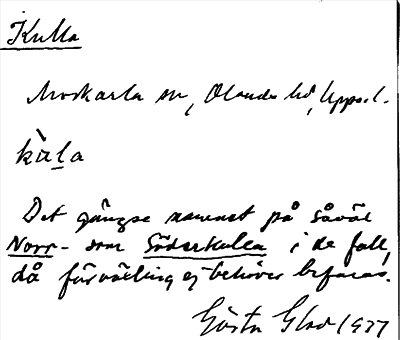 Kulla
Morkarla sn, Olands hd, Upps. l.
kùla
Det gängse namnet på såväl
Norr- som Söderkulla i de fall,
då förväxling ej behöver befaras.
Gösta Glad 1937